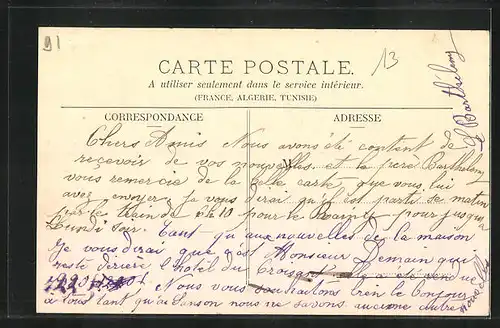 91
13
CARTE POSTALE.
A utiliser seulement dans le service intérieur.
(FRANCE, ALGERIE, TUNISIE)
CORRESPONDANCE
ADRESSE
Chers Amis Nous avons été content de
recevoir de vos nouvelles et le frere Barthelemy
vous remercie de la belle carte que vous lui
avez envoyer Je vous dirai qu'il est parti se matin
par le train de 10 pour le pour jusqu'a
Lundi Soir. Tant qu'aux nouvelles de la maison
Je vous dirai que c'est Monsieur Lemain qui
reste derière l'hotel du Croissant
Nous vous souhaitons bien le Bonjour
a tous tant qu'a Sanson nous ne savons aucune autre
nouvelles
Barthélemy